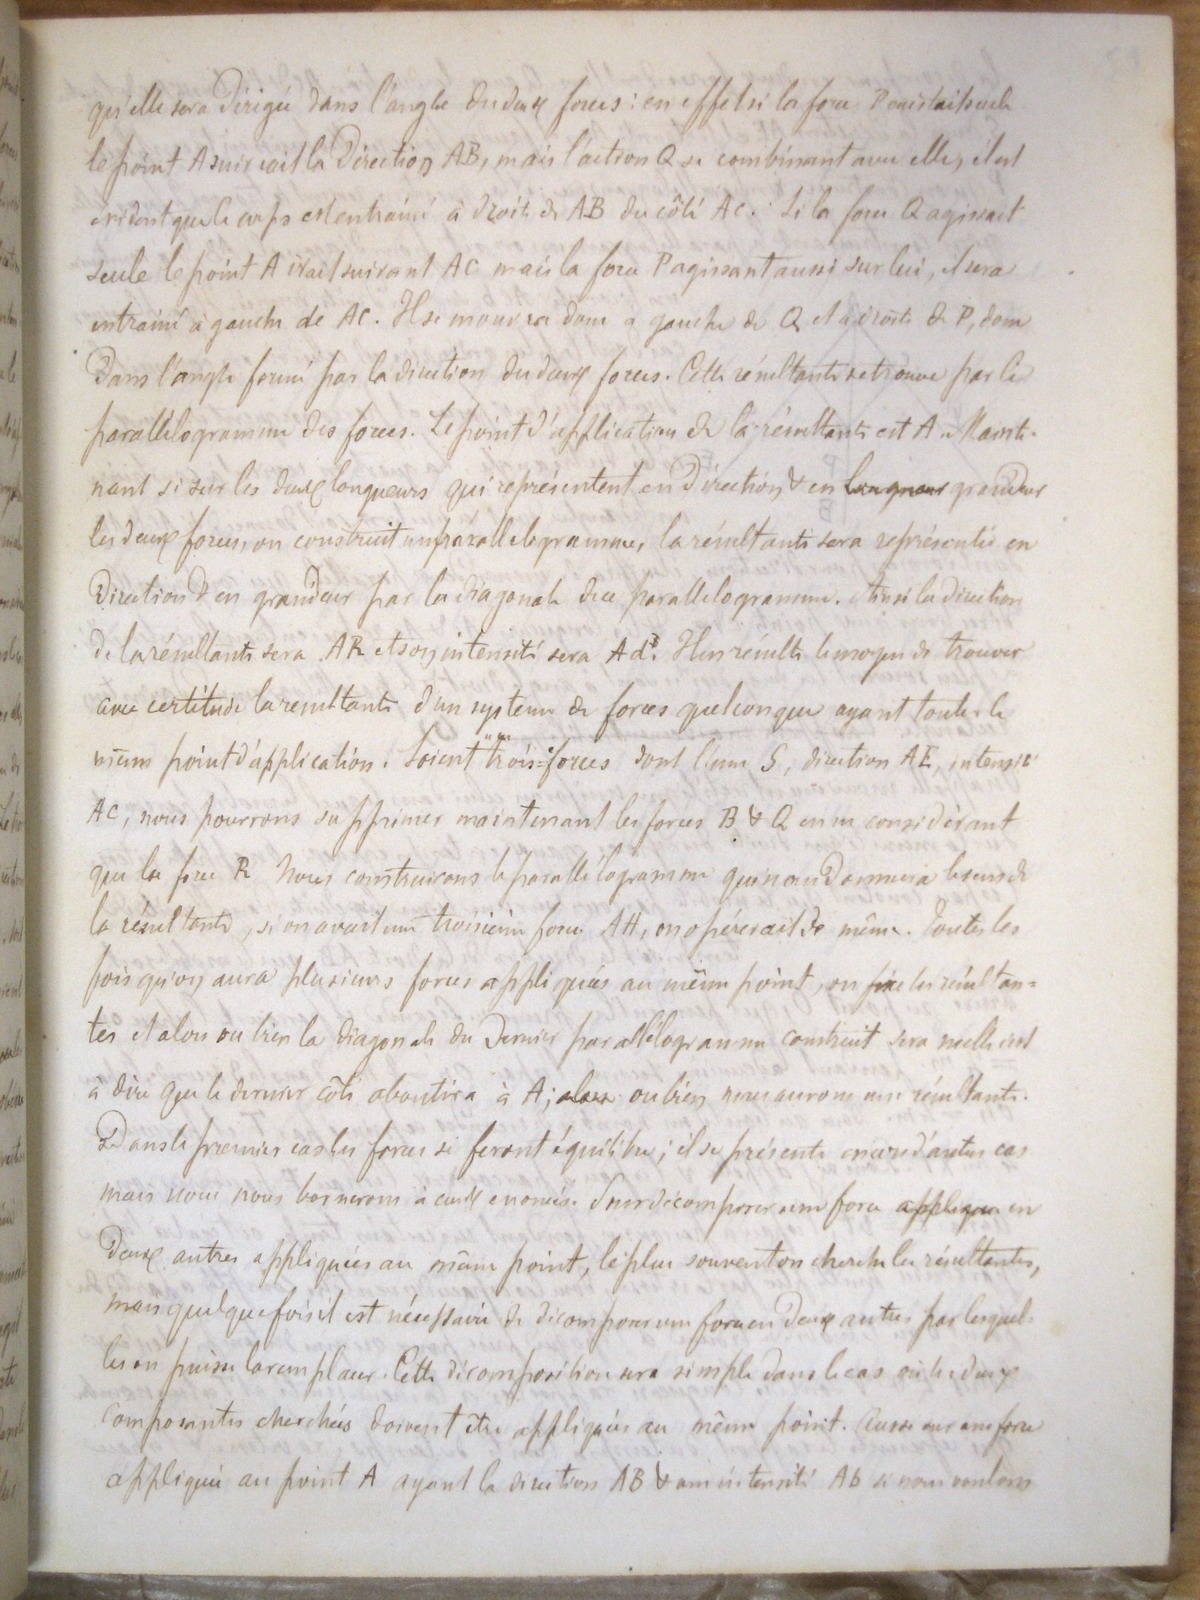 qu'elle sera dirigée dans l'angle des deux forces: en effet si la force P existait seule
le point A suivrait la direction AB, mais l'action Q se combinant avec elle, il est
évident que le corps est entrainé à droite de AB du côté AC. Si la force Q agissait
seule le point A irait suivant AC mais la force P agissant aussi sur lui, il sera
entrainé à gauche de AC. Il se mouvra donc à gauche de Q et à droite de P, donc
dans l'angle formé par la direction des deux forces. Cette résultante se trouve par le
parallélogramme des forces. Le point d'application de la résultante est A. Mainte-
nant si sur les deux longueurs qui représentent en direction & en longueur grandeur
les deux forces, on construit un parallelogramme, la résultante sera représentée en
direction & en grandeur par la diagonale du parallelogramme. Ainsi la direction
de la résultante sera AR et son intensité sera Ad. Il en résulte le moyen de trouver
avec certitude la resultante d'un systeme de forces quelconque ayant toutes le
même point d'application. Soient trois forces dont l'une S, direction AE, intensité
AC, nous pourrons supprimer maintenant les forces B & Q en ne considérant
que la force R. Nous construirons le parallélogramme qui nous donnera le sens de
la résultante, si on avait une troisième force AH, on opérerait de même. Toutes les
fois qu'on aura plusieurs forces appliquées au même point, on fixe les résultan-
tes et alors ou bien la diagonale du dernier parallélogramme construit sera nulle c'est
à dire que le dernier côté aboutira à A; alors ou bien nous aurons une résultante.
Dans le premier cas les forces se feront équilibre; il se présente encore d'autres cas
mais nous nous bornerons à ceux enoncés. Pour décomposer une force appliquée en
deux autres appliquées au même point, le plus souvent on cherche les résultantes,
mais quelquefois il est nécessaire de décomposer une force en deux autres par lesquel-
les on puisse la remplacer. Cette décomposition sera simple dans le cas où les deux
composantes cherchées doivent être appliquées au même point. une force
appliquée au point A ayant la direction AB & une intensité Ab si nous voulons